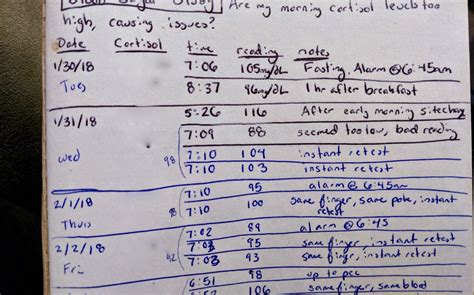 Blood Sugar Study Are my morning cortisol levels too
high, causing issues?
Date Cortisol time reading notes
1/30/18 7:06 105mg/dL Fasting. Alarm @6:45am
Tues 8:37 96mg/dL 1 hr after breakfast
1/31/18 5:26 116 After early morning
7:09 88 seemed too low, bad reading
Wed 98 7:10 104 instant retest
7:10 103 instant retest
2/1/18 7:10 95 alarm @ 6:45am
Thurs 98 7:10 100 same finger, same poke, instant
retest
2/2/18 7:02 89 alarm @ 6:45
Fri 92 7:03 95 same finger, instant retest
7:03 93 same finger, instant retest
6:51 98 up to pee
106 same finger, same blood